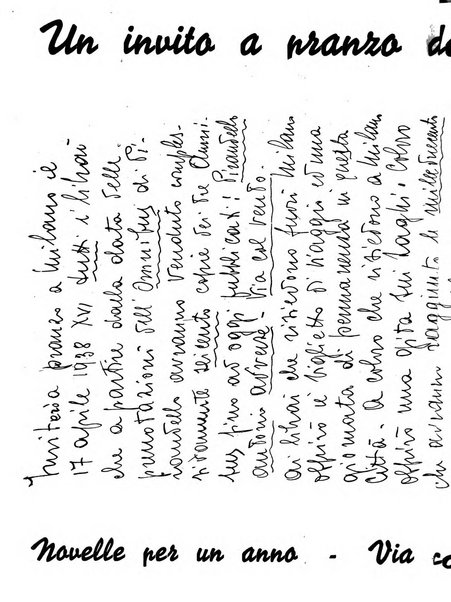 Un invito a pranzo d
Inviterò a pranzo a Milano il
17 aprile 1938 XVI tutti i librai
che a partire dalla data delle
prenotazioni dell'Omnibus di Pi-
randello avranno venduto comples-
sivamente seicento copie dei tre Omni-
bus fino ad oggi pubblicati: Pirandello
antonio adverse - Via col vento.
ai librai che risiedono fuori Milano
offrirò il biglietto di viaggio ed una
giornata di permanenza in questa
Città. a coloro che risiedono a Milano
offrirò una gita sui laghi. a coloro
che avranno raggiunto le milleduecento
Novelle per un anno - Via co